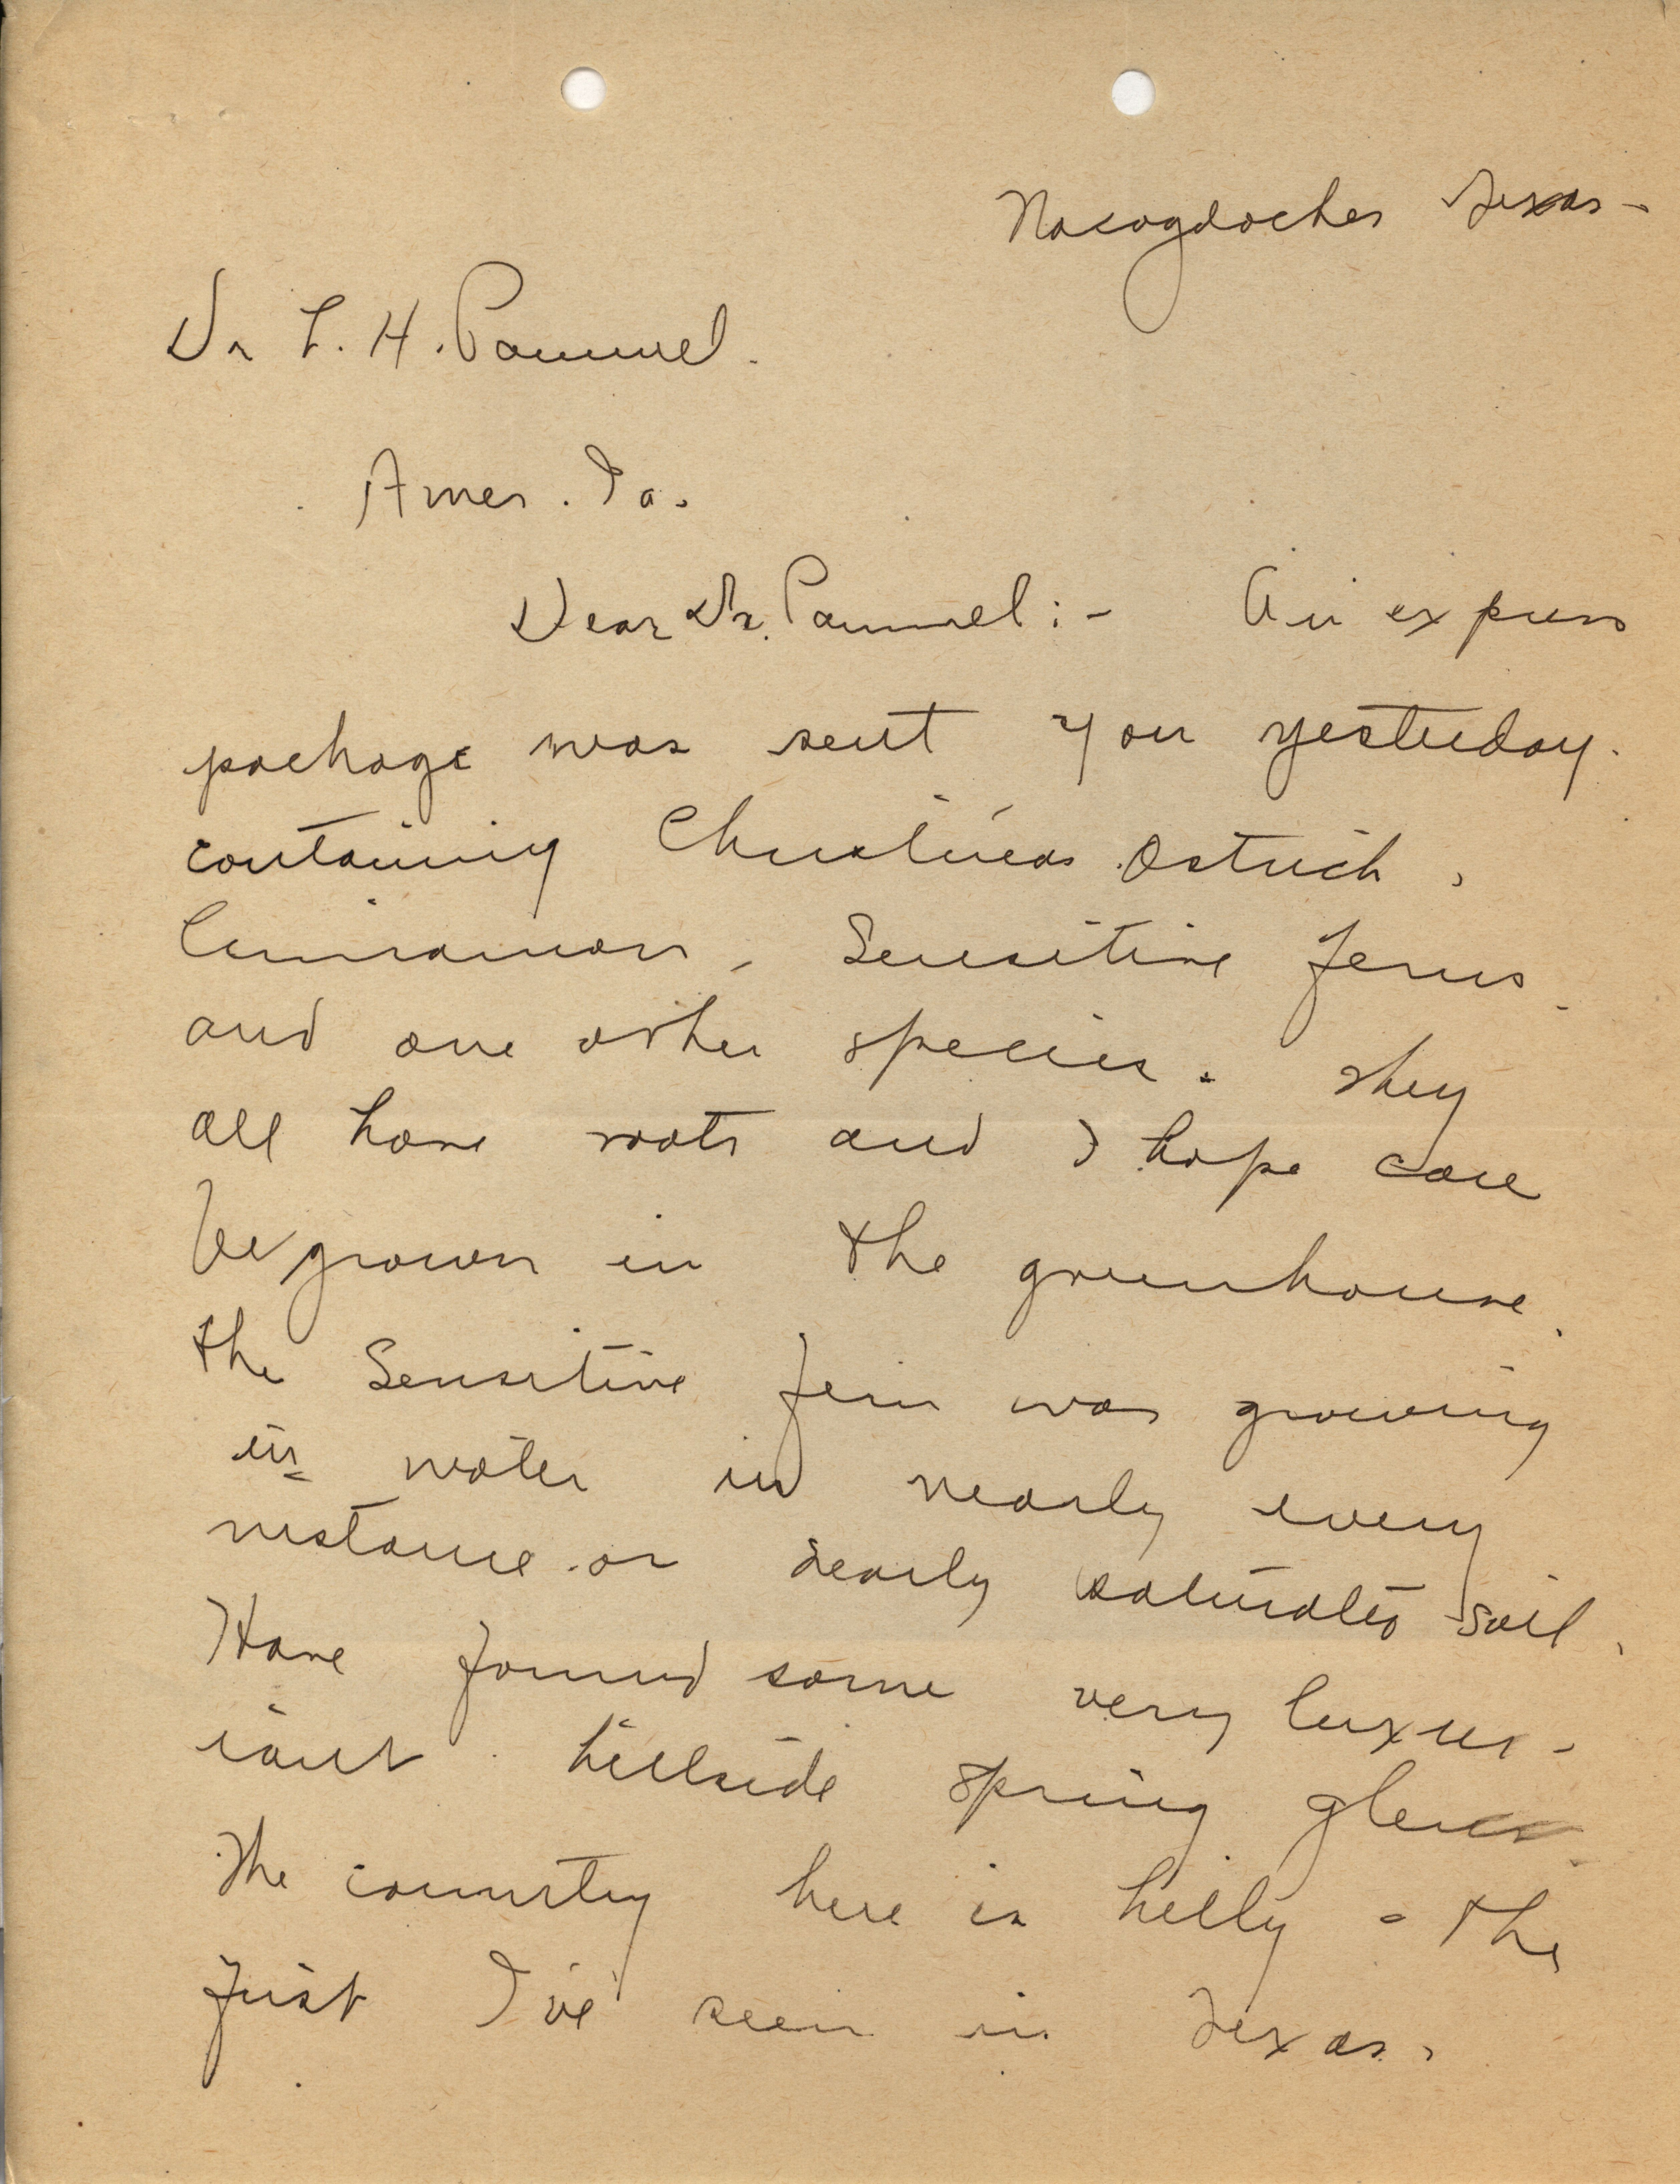 Nacogdoches Texas -
Dr L. H. Pammel.
Ames. Ia.
Dear Dr. Pammel: - An express
package was sent you yesterday.
containing Christmas. Ostrich,
Cinnamon, Sensitive ferns
and one other species. They
all have roots and I hope can
be grown in the greenhouse.
The Sensitive fern was growing
in water in nearly every
instance or nearly saturated soil.
Have found some very luxur-
iant hillside spring glens
The country here is hilly - the
first I've seen in Texas.